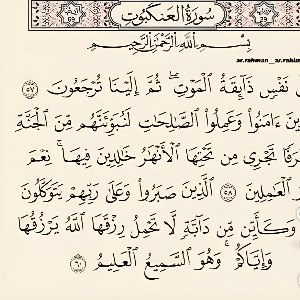 سُورَةُ العَنكَبُوتِ
بِسْمِ ٱللَّهِ ٱلرَّحْمَٰنِ ٱلرَّحِيمِ
ar.rahman__ar.rahim
نَفْسٍ ذَآئِقَةُ ٱلْمَوْتِ ۖ ثُمَّ إِلَيْنَا تُرْجَعُونَ ٥٧
ءَامَنُوا۟ وَعَمِلُوا۟ ٱلصَّٰلِحَٰتِ لَنُبَوِّئَنَّهُم مِّنَ ٱلْجَنَّةِ
تَجْرِى مِن تَحْتِهَا ٱلْأَنْهَٰرُ خَٰلِدِينَ فِيهَا ۚ نِعْمَ
ٱلْعَٰمِلِينَ ٥٨ ٱلَّذِينَ صَبَرُوا۟ وَعَلَىٰ رَبِّهِمْ يَتَوَكَّلُونَ
وَكَأَيِّن مِّن دَآبَّةٍ لَّا تَحْمِلُ رِزْقَهَا ٱللَّهُ يَرْزُقُهَا
وَإِيَّاكُمْ ۚ وَهُوَ ٱلسَّمِيعُ ٱلْعَلِيمُ ٦٠